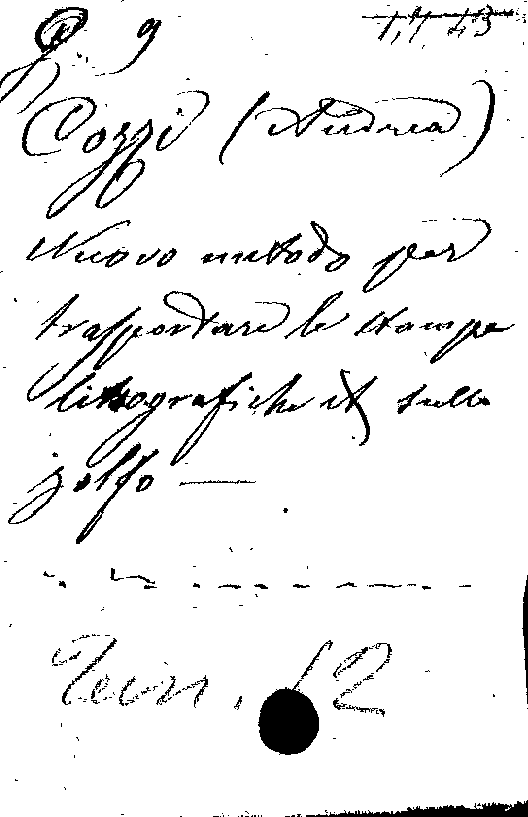 9
Cozzi (Andrea)
Nuovo metodo per
trasportare le stampe
litografiche sullo
zolfo —
12